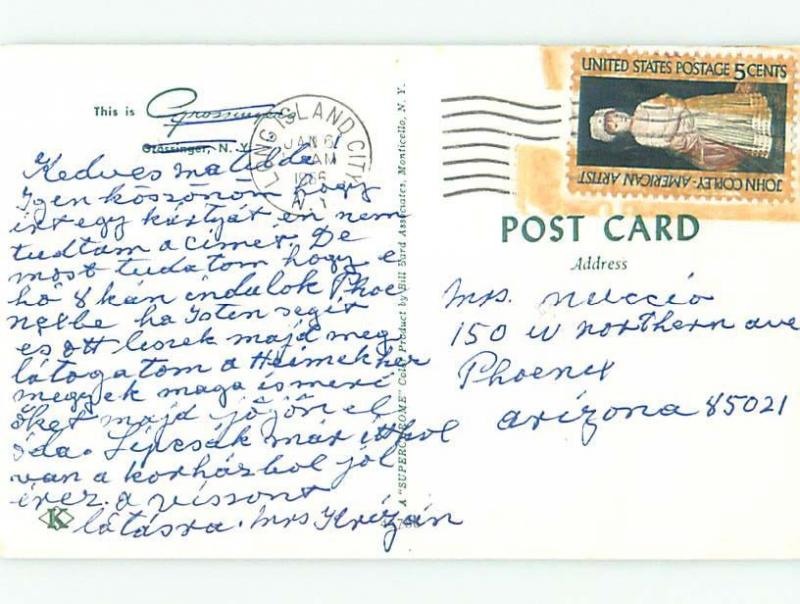 This is Grossinger's
Grossinger, N. Y.
LONG ISLAND CITY
JAN 6
AM
N. Y.
UNITED STATES POSTAGE 5 CENTS
JOHN COPLEY-AMERICAN ARTIST
POST CARD
Address
Kedves matilda!
Igen köszönöm hogy
irt egy kártyát én nem
tudtam a cimét. De
most tudatom hogy e
hó 8 kán indulok Phoe
nexbe ha Isten segit
es ott leszek majd meg
látogatom a Heimekhez
megyek maga ismeri
őket majd jöjjön el
óda. Lipcsák már itthol
van a korházbol jól
érez. a vissont
látásra. Mrs Krizán
Mrs. Nuccio
150 W northern ave
Phoenix
arizona 85021
A "SUPERCHROME" Color Product by Bill Bard Associates, Monticello, N. Y.
K